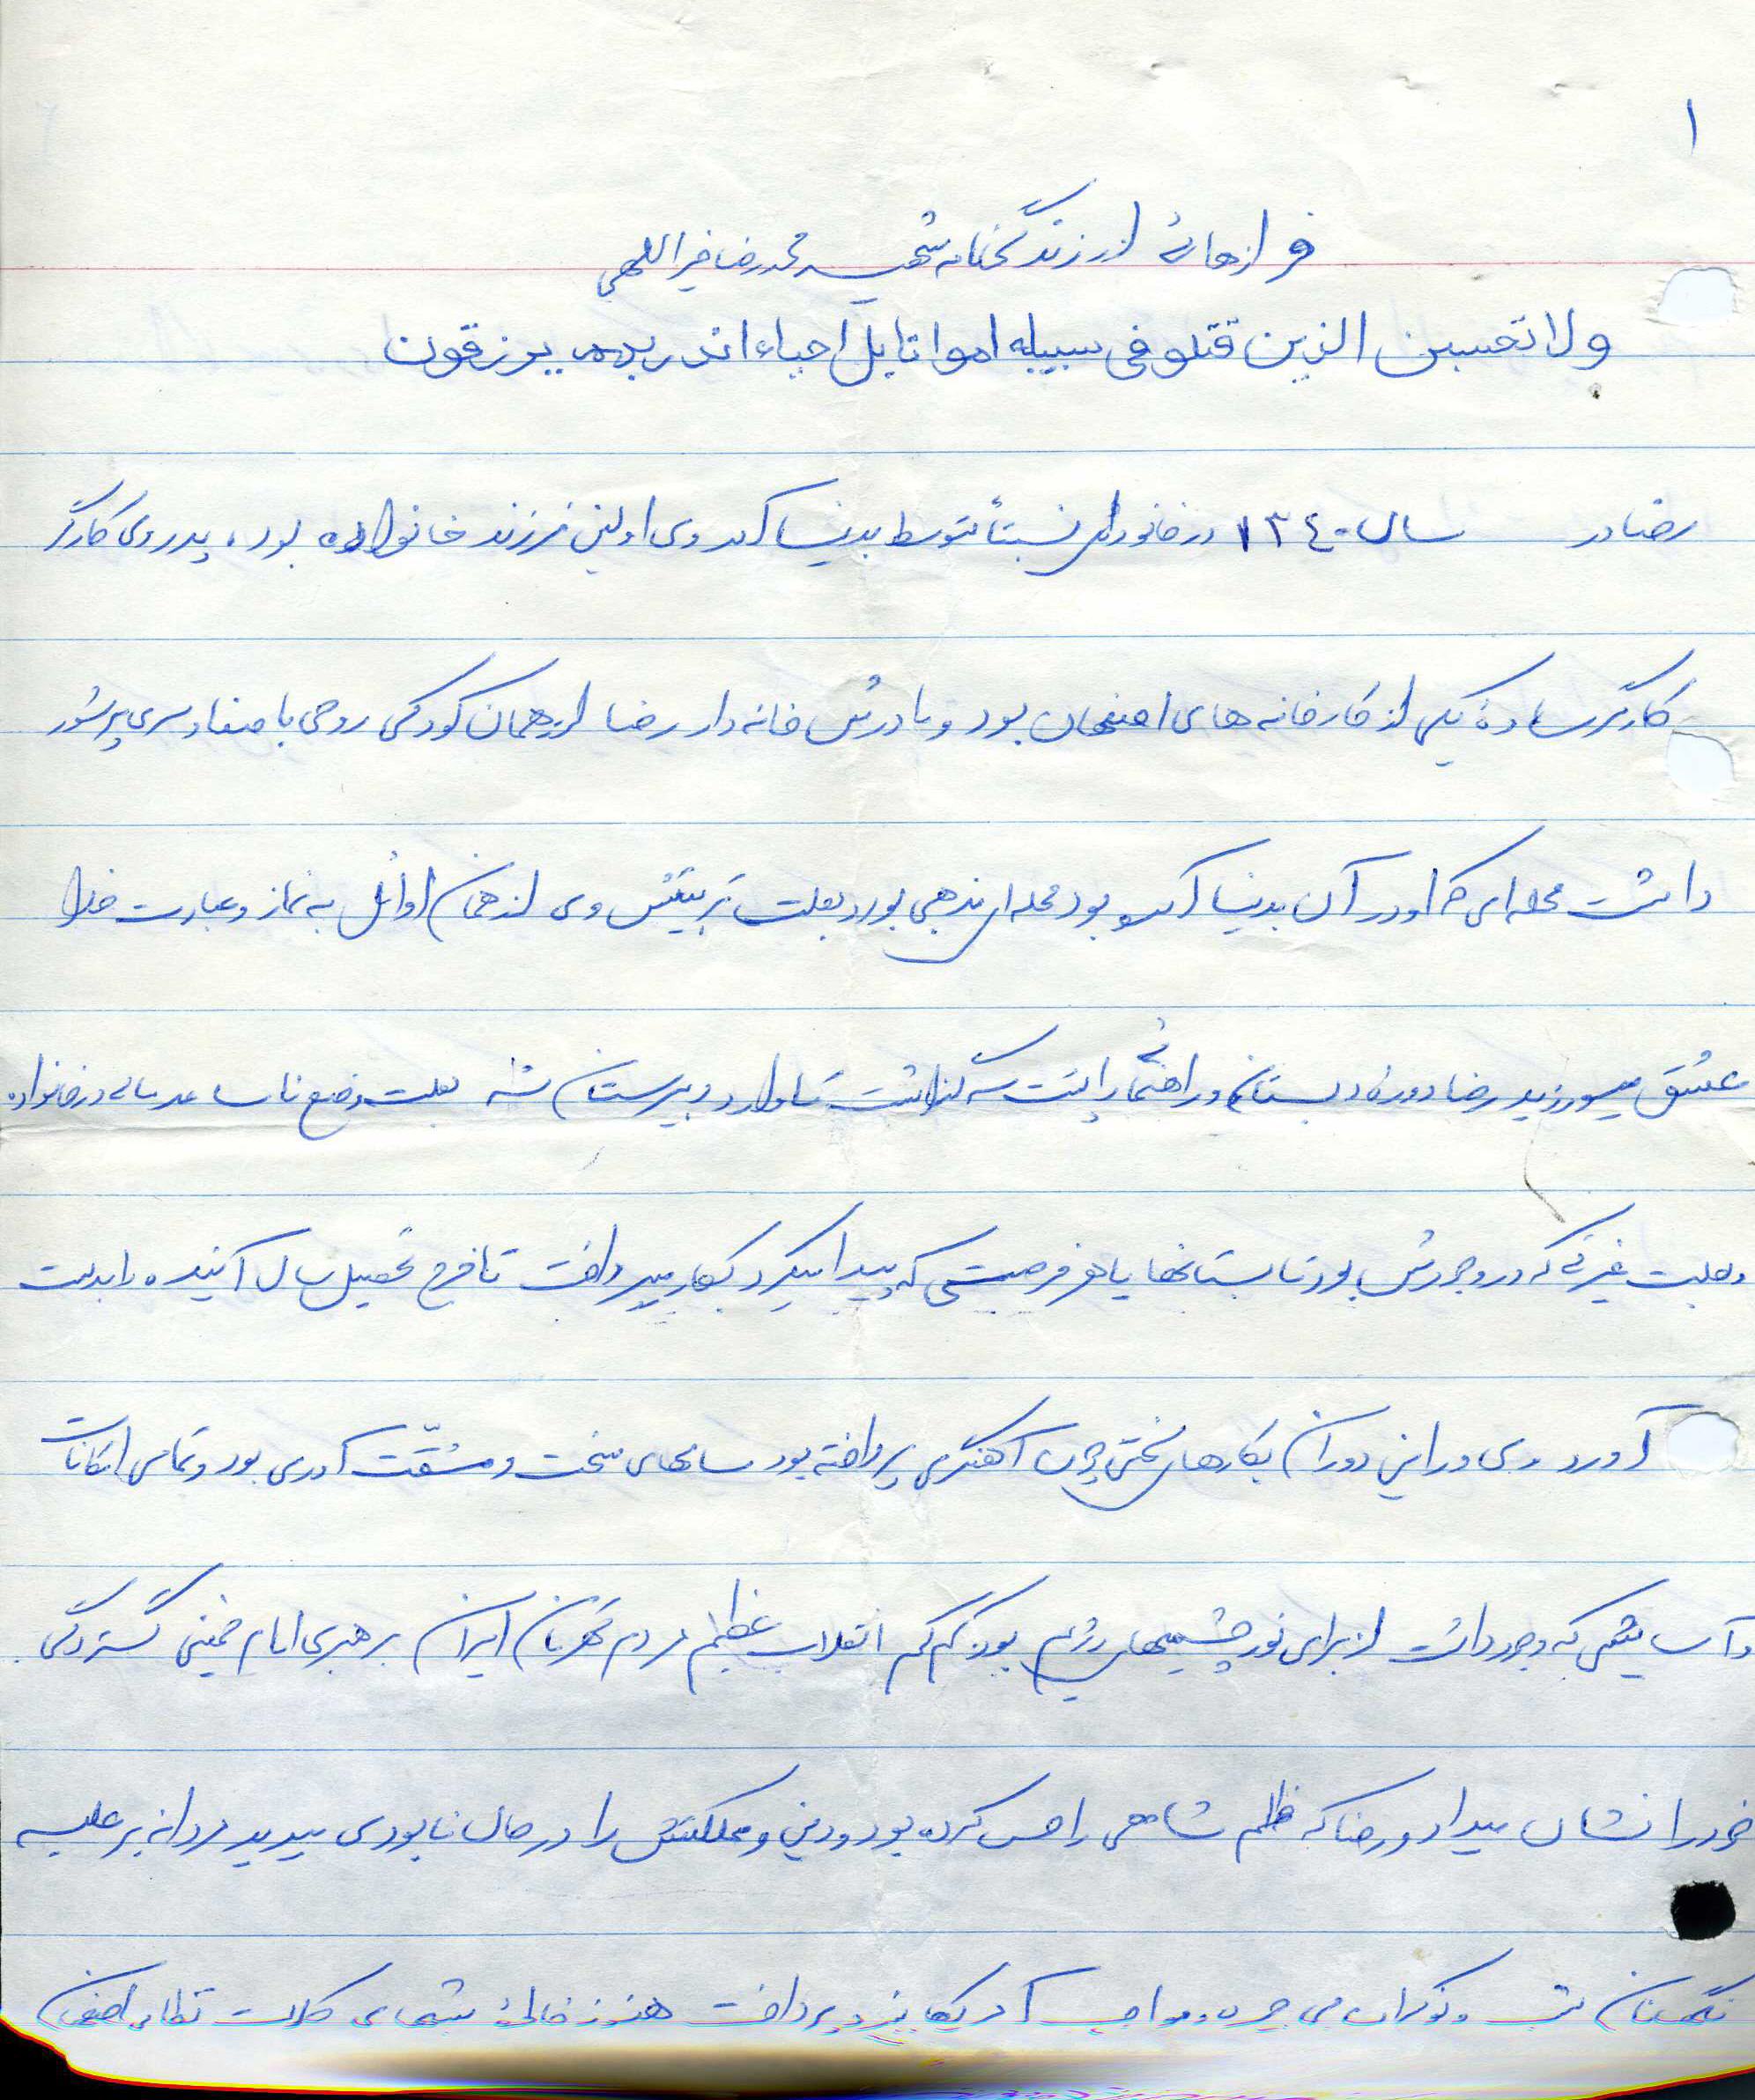 ۱
فرازهائی از زندگینامه شهید محمدرضا خیراللهی
ولا تحسبن الذین قتلو فی سبیله امواتا بل احیاء اند ربهم یرزقون
رضا در سال ۱۳٤۰ در خانواده‌ای نسبتاً متوسط بدنیا آمد وی اولین فرزند خانواده بود، پدر وی کارگر
کارگر ساده یکی از کارخانه های اصفهان بود و مادرش خانه دار رضا از همان کودکی روحی با صفا و سری پرشور
داشت محله‌ای که او در آن بدنیا آمده بود محله‌ای مذهبی بود و بعلت تربیتش وی از همان اوائل به نماز و عبادت خدا
عشق میورزید رضا دوره دبستان و راهنمائی را پشت سر گذاشت تا وارد دبیرستان شد بعلت وضع نامساعد مالی در خانواده
و بعلت غیرتی که در وجودش بود تابستانها یا هر فرصتی که پیدا میکرد بکار میپرداخت تا خرج تحصیل سال آینده را بدست
آورد وی در این دوران بکارهای سختی چون آهنگری پرداخته بود سالهای سخت و مشقّت آوری بود و تمامی امکانات
و آسایشی که وجود داشت از برای نورچشمیهای رژیم بود کم کم انقلاب عظیم مردم قهرمان ایران برهبری امام خمینی گستردگی
خود را نشان میداد و رضا که ظلم شاهی را حس کرده بود و دین و مملکتش را در حال نابودی میدید مردانه بر علیه
نگهبانان شب و نوکران بی جیره و مواجب آمریکا بنبرد پرداخت هنوز خاطره شبهای حکومت نظامی اصفهان